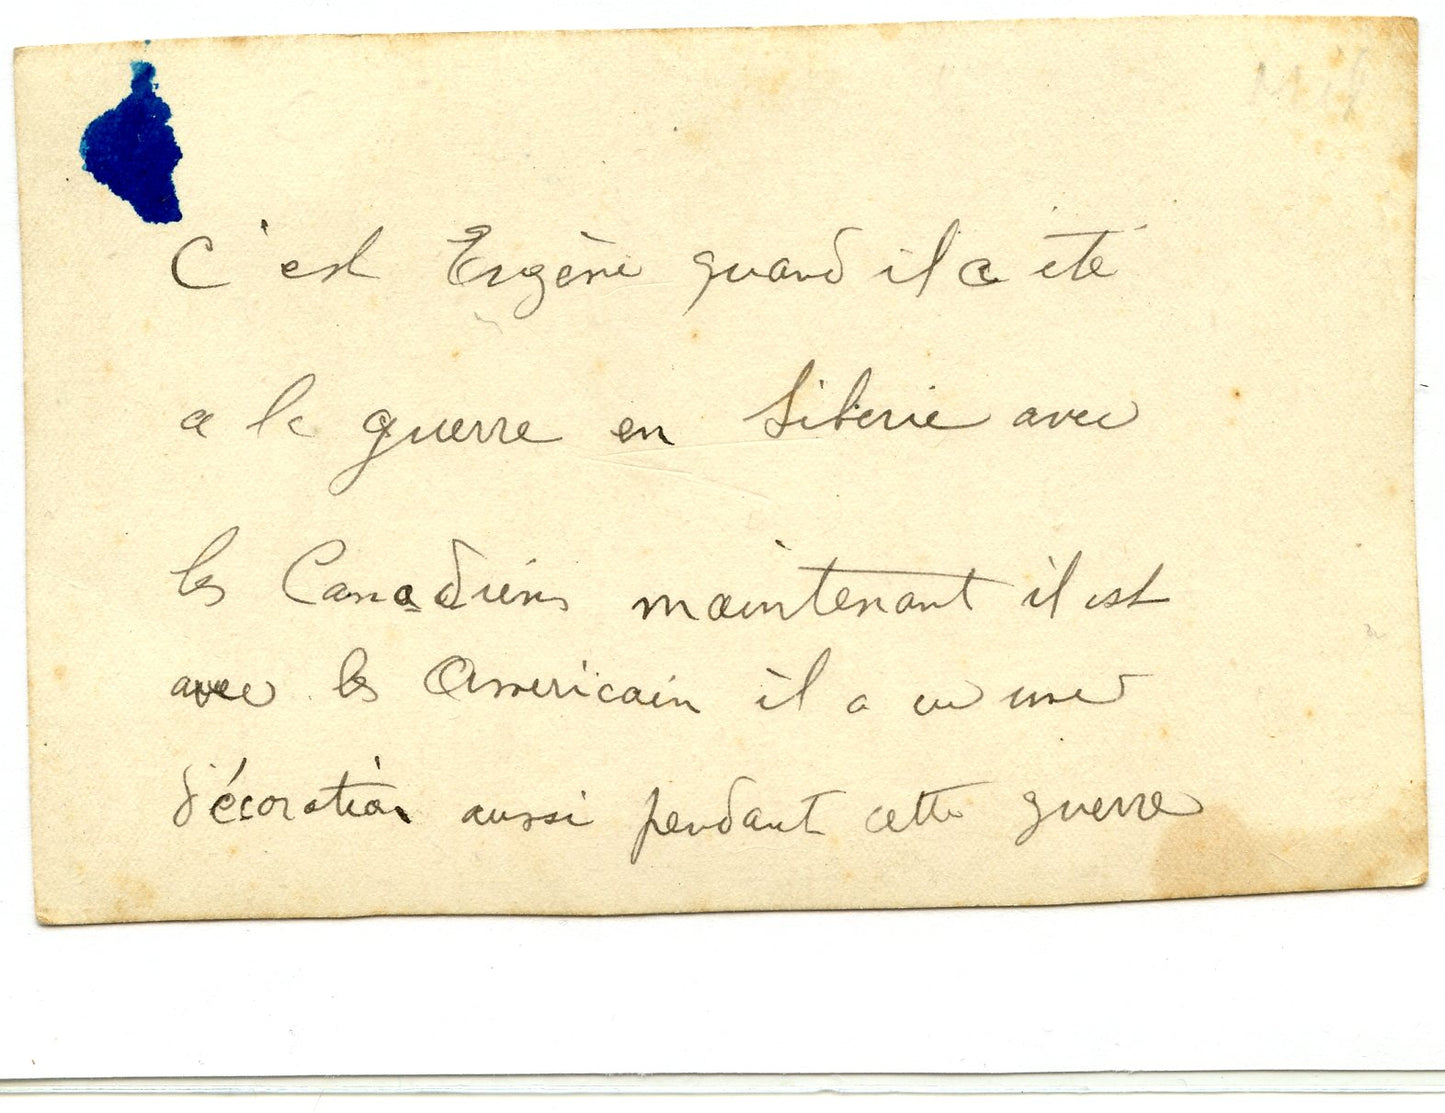 C'est Eugène quand il a été
a la guerre en Siberie avec
les Canadiens maintenant il est
avec les Americain il a eu une
décoration aussi pendant cette guerre